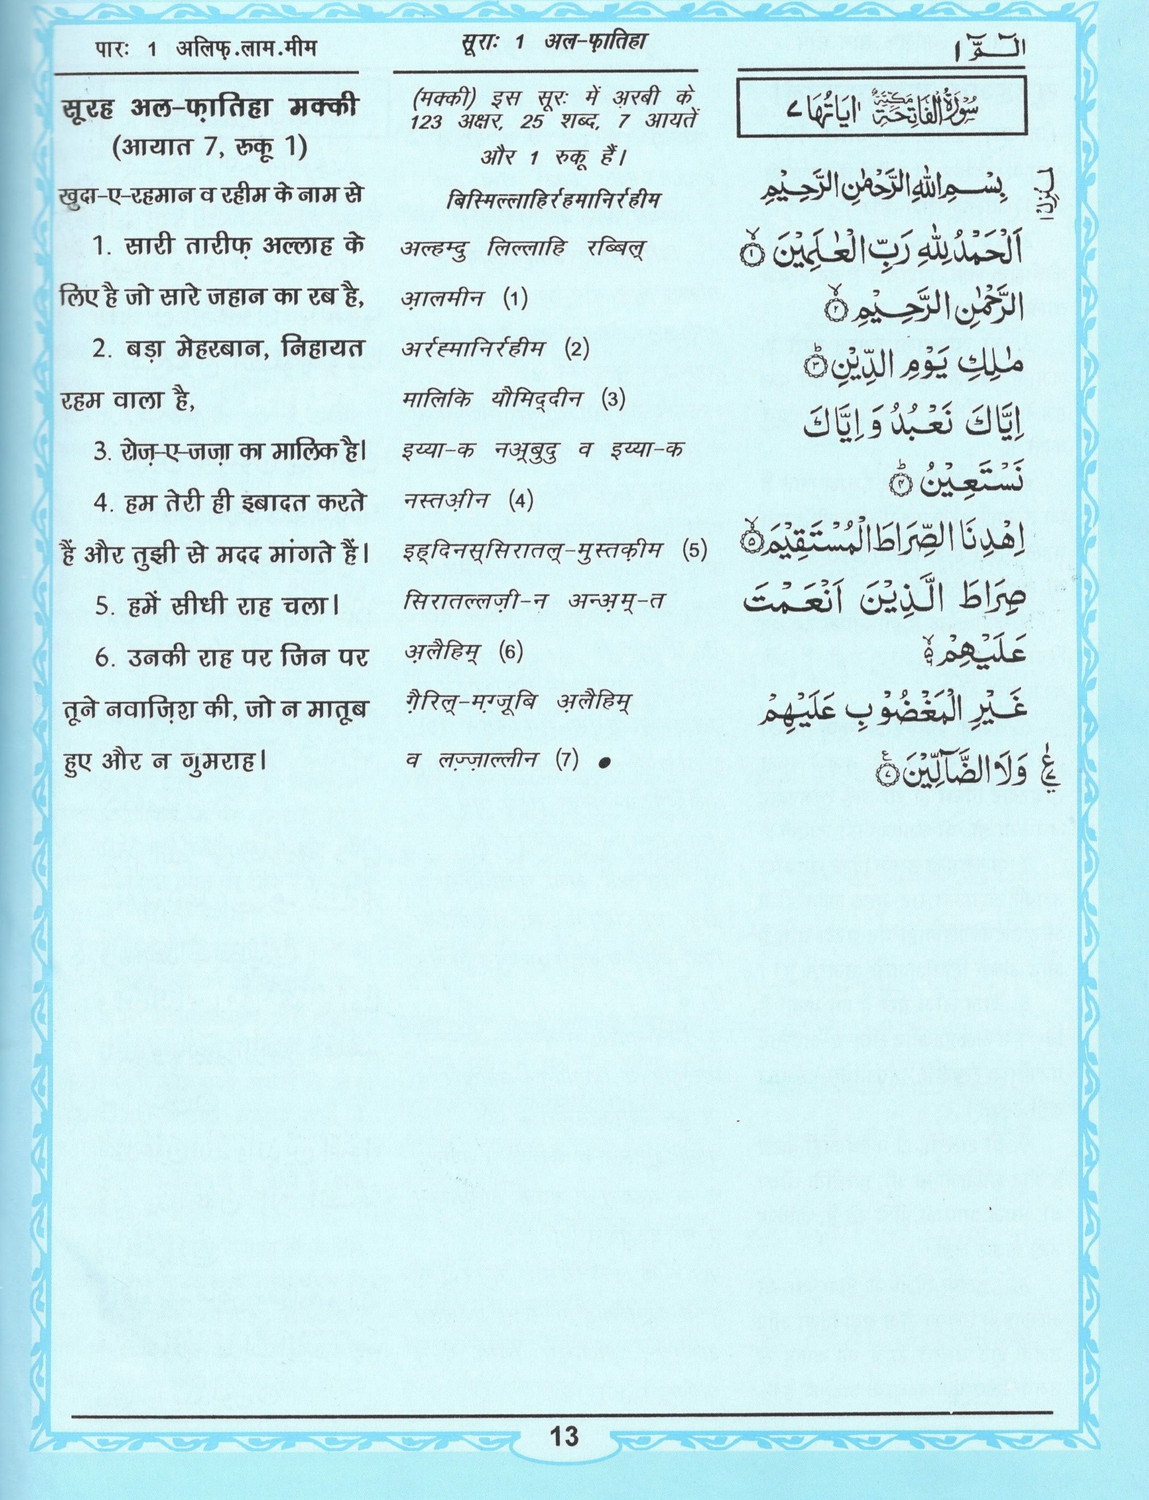 पारः 1 अलिफ़.लाम.मीम
सूरह अल-फ़ातिहा मक्की
(आयात 7, रुकू 1)
खुदा-ए-रहमान व रहीम के नाम से
1. सारी तारीफ़ अल्लाह के
लिए है जो सारे जहान का रब है,
2. बड़ा मेहरबान, निहायत
रहम वाला है,
3. रोज़-ए-जज़ा का मालिक है।
4. हम तेरी ही इबादत करते
हैं और तुझी से मदद मांगते हैं।
5. हमें सीधी राह चला।
6. उनकी राह पर जिन पर
तूने नवाज़िश की, जो न मातूब
हुए और न गुमराह।
सूराः 1 अल-फ़ातिहा
(मक्की) इस सूरः में अ़रबी के
123 अक्षर, 25 शब्द, 7 आयतें
और 1 रुकू हैं।
बिस्मिल्लाहिर्रहमानिर्रहीम
अल्हम्दु लिल्लाहि रब्बिल्
आ़लमीन (1)
अर्रह्मानिर्रहीम (2)
मालिकि यौमिद्दीन (3)
इय्या-क नअ़्बुदु व इय्या-क
नस्तअ़ीन (4)
इह्दिनस्सिरातल्-मुस्तक़ीम (5)
सिरातल्लज़ी-न अन्अ़म्-त
अ़लैहिम् (6)
ग़ैरिल्-मग़्जूबि अ़लैहिम्
व लज़्ज़ाल्लीन (7)
الٓمّٓ ١
سُوْرَةُ الْفَاتِحَةِ مَكِّيَّةٌ اٰيَاتُهَا ٧
بِسْمِ اللهِ الرَّحْمٰنِ الرَّحِيْمِ
اَلْحَمْدُ لِلّٰهِ رَبِّ الْعٰلَمِيْنَ ۙ﴿١﴾
الرَّحْمٰنِ الرَّحِيْمِ ۙ﴿٢﴾
مٰلِكِ يَوْمِ الدِّيْنِ ؕ﴿٣﴾
اِيَّاكَ نَعْبُدُ وَ اِيَّاكَ
نَسْتَعِيْنُ ؕ﴿٤﴾
اِهْدِنَا الصِّرَاطَ الْمُسْتَقِيْمَ ۙ﴿٥﴾
صِرَاطَ الَّذِيْنَ اَنْعَمْتَ
عَلَيْهِمْ ۙ۬
غَيْرِ الْمَغْضُوْبِ عَلَيْهِمْ
وَلَا الضَّآلِّيْنَ ﴿٧﴾ ع
13